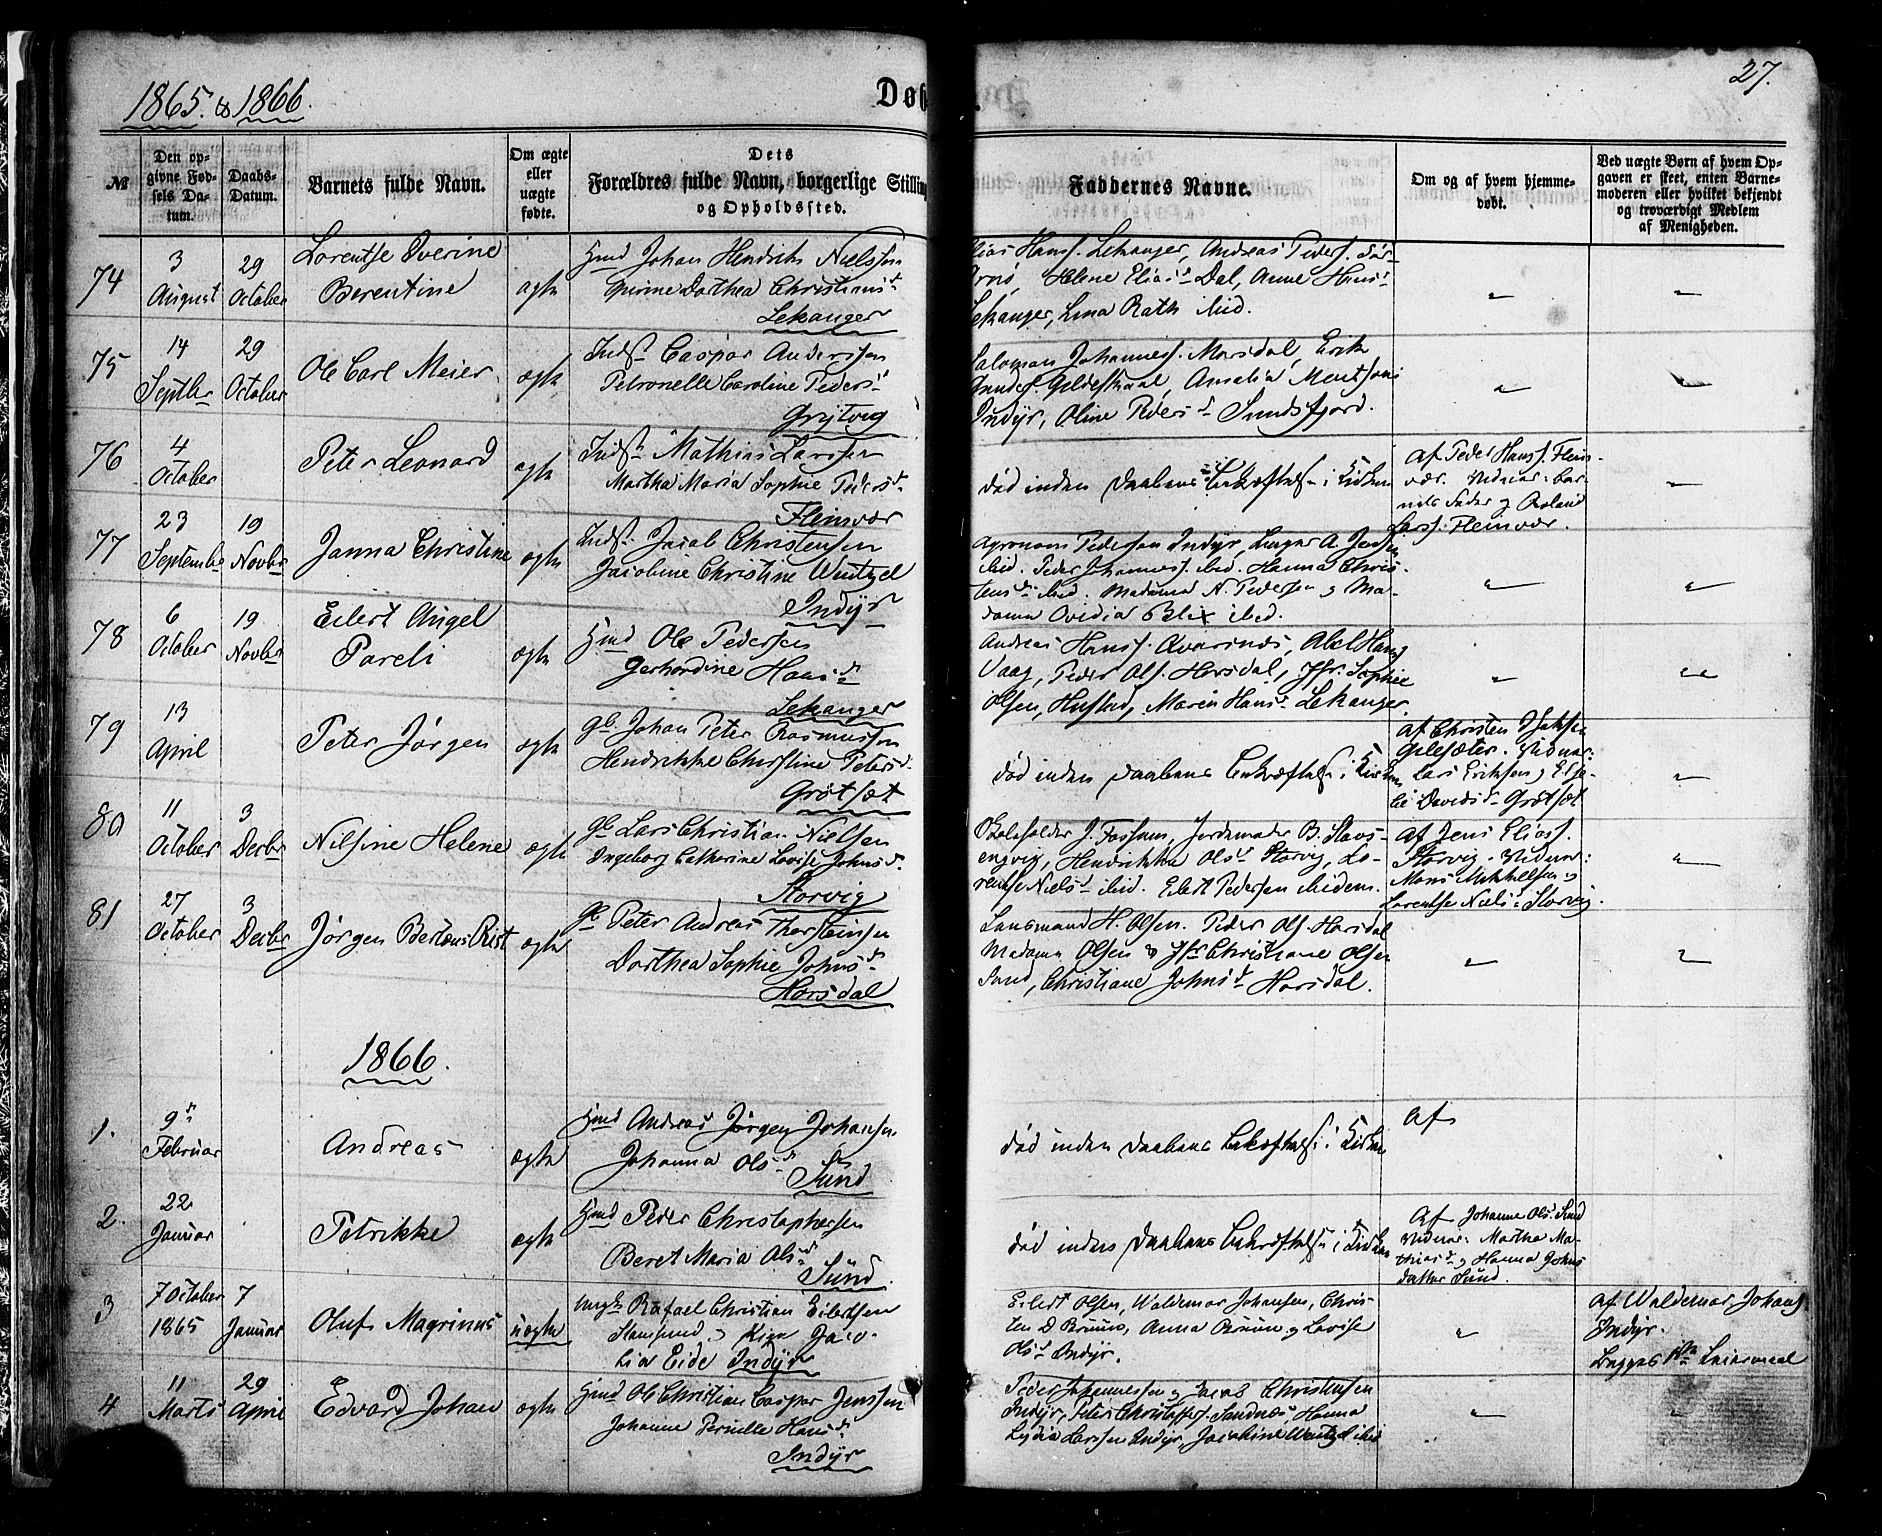 1865. & 1866.
Døb
27.
№
Den op-
givne Fød-
sels Da-
tum.
Daabs-
Datum.
Barnets fulde Navn.
Om ægte
eller
uægte
fødte.
Dets
Forældres fulde Navn, borgerlige Stilling
og Opholdssted.
Faddernes Navne.
Om og af hvem hjemme-
døbt.
Ved uægte Børn af hvem Op-
gaven er skeet, enten Barne-
moderen eller hvilket bekjendt
og troværdigt Medlem
af Menigheden.
74
3
August
29
October
Lorentse Overine
Berentine
ægte
Hmd Johan Hendrik Nielssen
Dorthea Christiansd.
Lekanger
Elias Hanss. Lekanger, Andreas Peders. Sør-
Arnø, Helene Eliasd. Dal, Anne Hans
Lekanger, Lina Rath ibid.
75
14
Septbr
29
October
Ole Carl Meier
ægte
Indst. Caspar Anderssen
Petronelle Caroline Pedersd.
Grytvig
Salomon Johanness. Marsdal, Erik
Gildeskaal, Amalia Mentsen
Indyr, Oline Pedersd. Sundsfjord.
76
4
October
Peter Leonard
ægte
Indst. Mathias Larssen
Martha Maria Sophie Pedersd.
Fleinvær
død inden Daabens Bekræftelse i Kirken
af Peder Hanss. Flein-
vær. Vidner: Bar-
nets Fader og Roland
Larss. Fleinvær.
77
23
Septembr
19
Novbr
Janna Christine
ægte
Indst. Jacob Christensen
Jacobine Christine Wentzel
Indyr
Agronom Pedersen Indyr, A. Jensen
ibid. Peder Johanness. ibid. Hanna Chris-
tensd. ibid. Madame N. Pedersen og Ma-
dame Ovidia Blix ibid.
78
6
October
19
Novbr
Eilert Angel
Pareli
ægte
Hmd Ole Pedersen
Gerhardine Hansd.
Lekanger
Andreas Hanss. Kvarsnæs, Abel Hans
Vaag, Peder Ols. Horsdal, Jfr. Sophie
Olsen, Hustad, Maren Hansd. Lekanger.
79
13
April
Peter Jørgen
ægte
gb. Johan Peter Rasmussen
Hendrikke Christine Petersd.
Grøtsæt
død inden Daabens Bekræftelse i Kirken
af Christen Isaksen
Gilesæter. Vidner:
Lars Eriksen og Else-
be Davidsd. Grøtsæt
80
11
October
3
Decbr
Nilsine Helene
ægte
gb Lars Christian Nielsen
Ingeborg Catharine Lovise Johnsd.
Storvig
Skoleholder J. Fossum, Jordemoder B. Stavs-
engvig, Hendrikke Olsd. Storvig, Lo-
rentse Nielsd. ibid. Eilert Pedersen ibidem.
af Jens Eliass.
Storvig. Vidner:
Mons Mikkelsen og
Lorentse Nielsd. Storvig.
81
27
October
3
Decbr
Jørgen Berteus Rist
ægte
gb Peter Andreas Thorsteinsen
Dorthea Sophie Johnsd.
Horsdal
Lensmand H. Olsen. Peder Ols. Horsdal
Madame Olsen & Jfr Christiane Olsen
Sund, Christiane Johnsd. Horsdal.
1866.
1.
9de
Februar
Andreas
ægte
Hmd Andreas Jørgen Johansen
Johanna Olsd.
Sund
død inden Daabens Bekræftelse i Kirken
af
2.
22
Januar
Petrikke
ægte
Hmd Peder Christophersen
Beret Maria Olsd.
Sund
død inden Daabens Bekræftelse i Kirken
Af Johanne Olsd. Sund
Vidner: Martha Ma-
thiasd. og Hanna Johns
datter Sund.
3
7 October
1865
7
Januar
Oluf Magrinus
uægte
Ungk. Rafael Christian Eilertsen
Stamsund og Pigen Jaco-
bia Eide Indyr
Eilert Olsen, Waldemar Johansen, Chris-
ten D Bruun, Anna Bruun og Lovise
Olsd. Indyr.
af Waldemar Johans
Indyr.
4
11
Marts
29
April
Edvard Johan
ægte
Hmd Ole Christian Caspar Jenssen
Johanne Pernille Hansd.
Indyr
Peder Johannessen og Jacob Christensen
Indyr, Peter Christoffers. Sandnæs, Hanna
Lydia Larssen Indyr, Jacobine Wentzel ibid